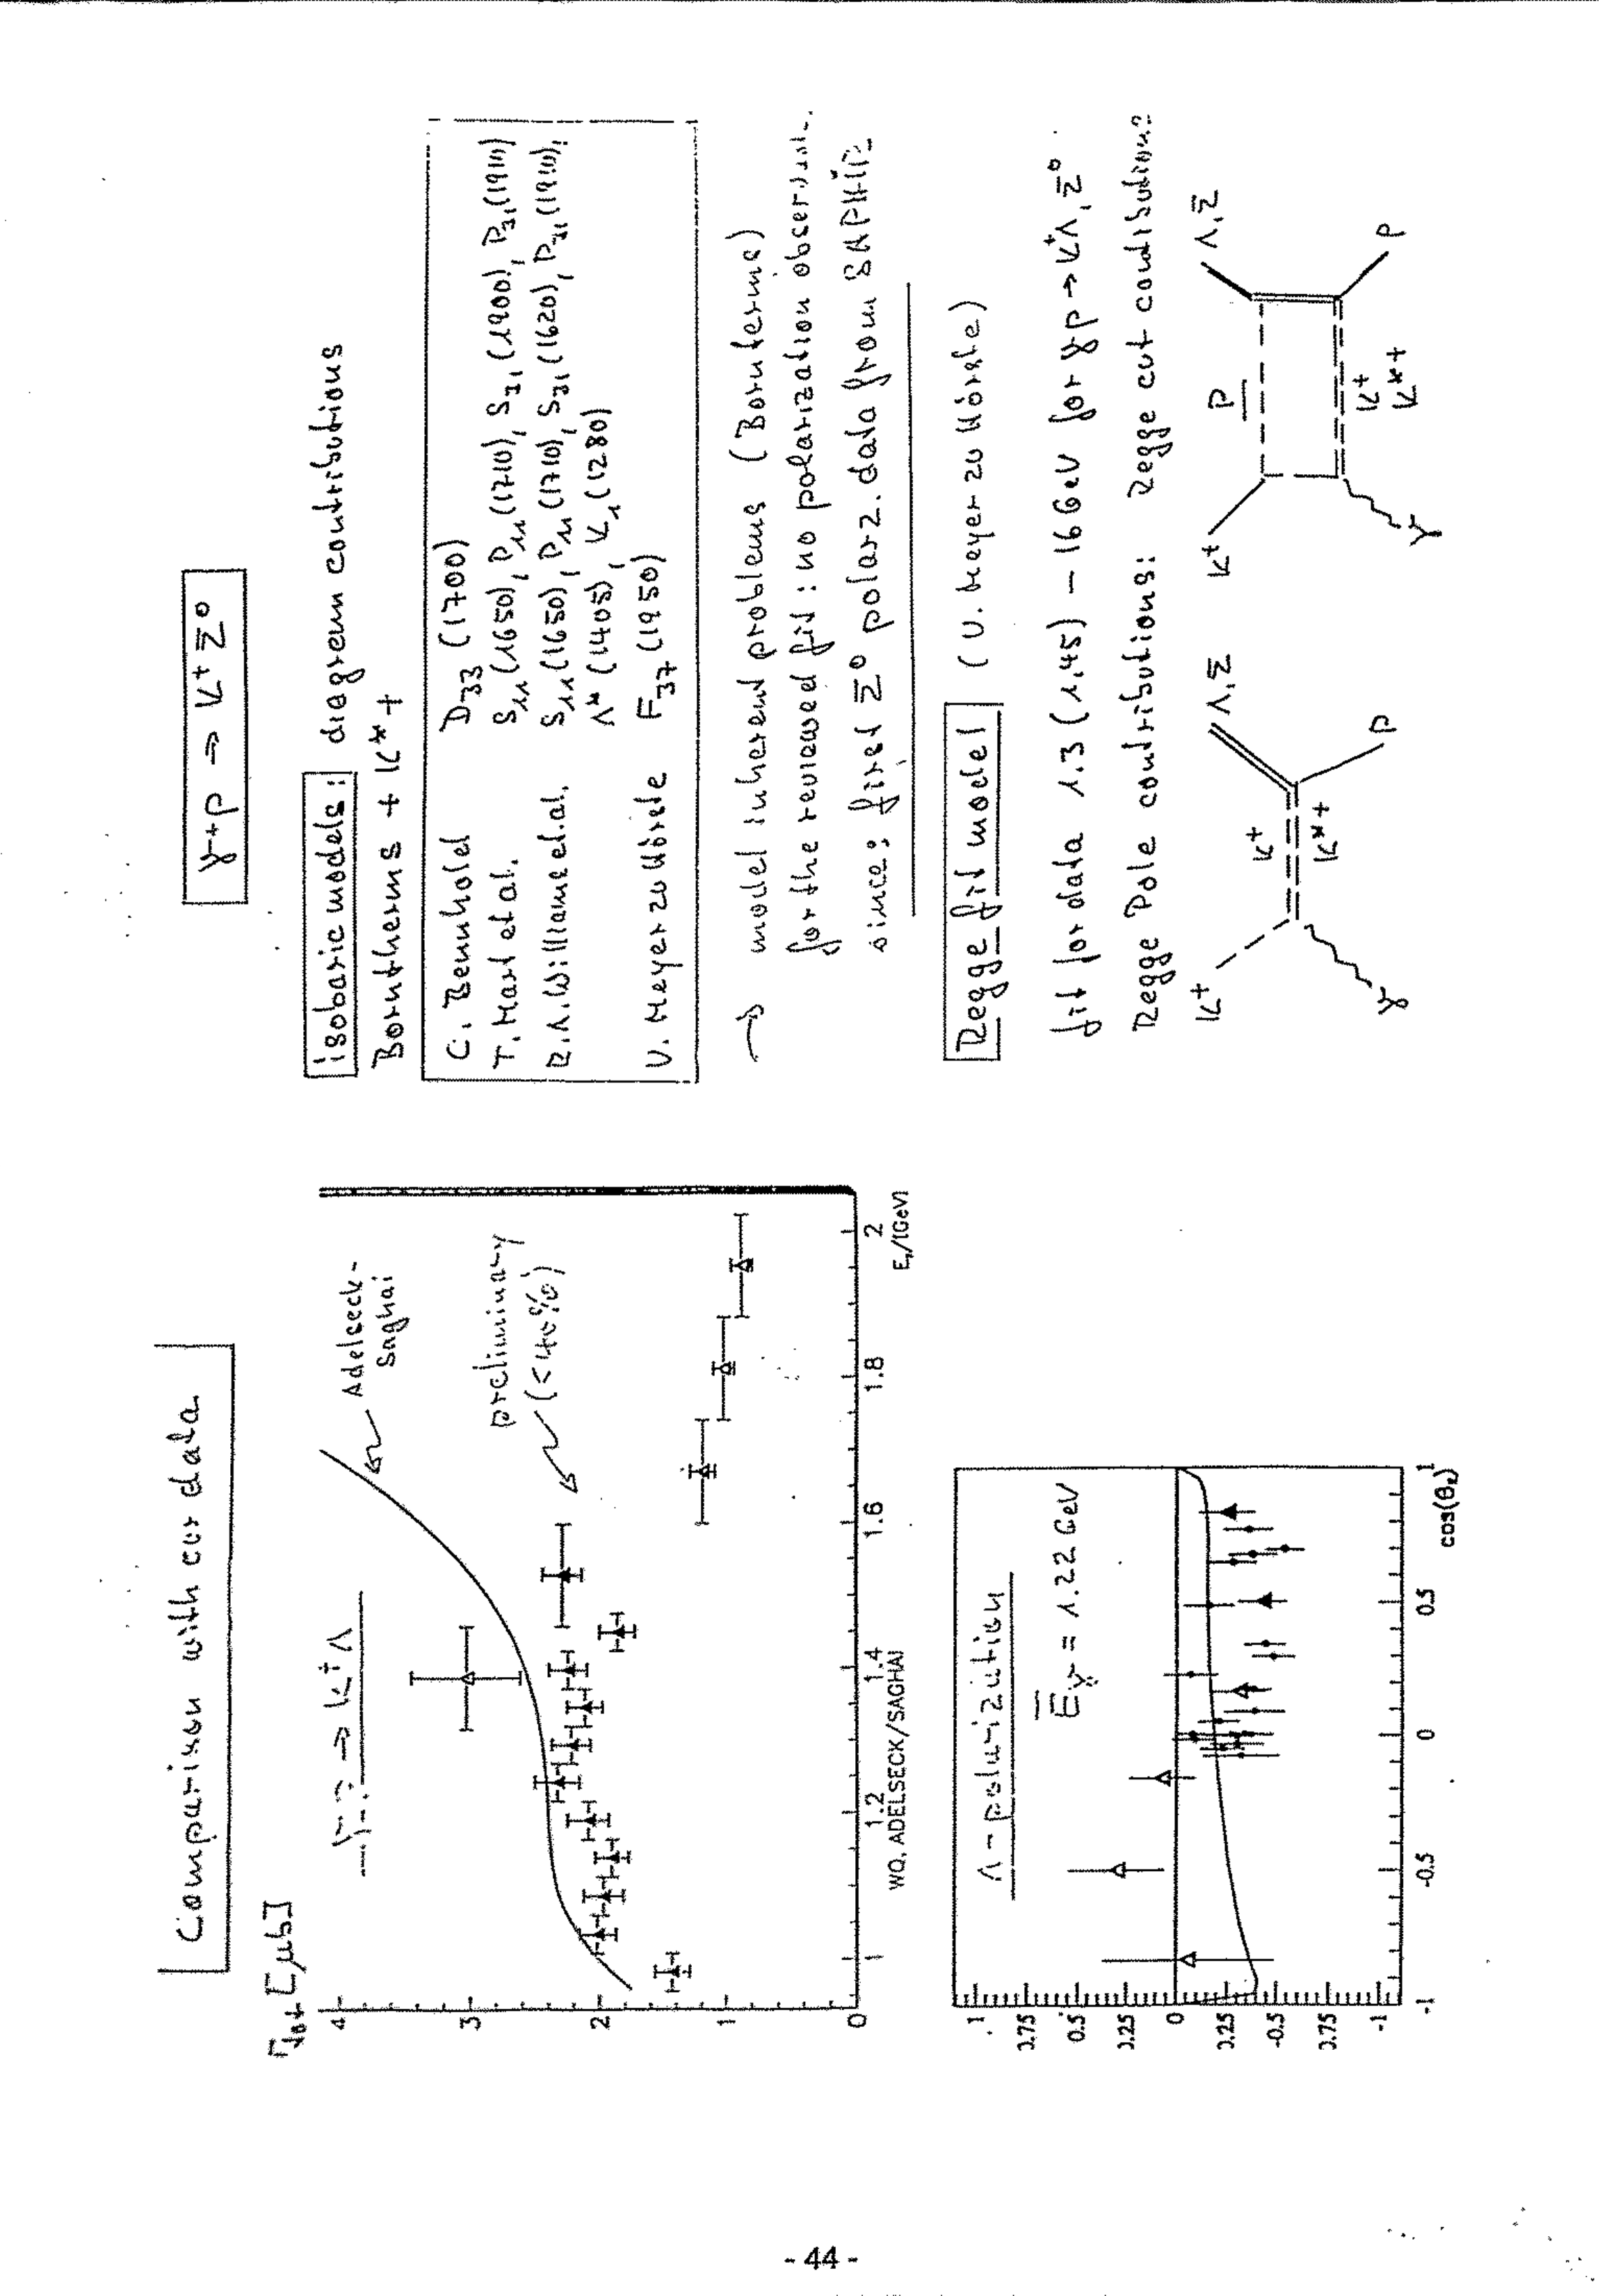 Comparison with our data
σtot [μb]
γp → K⁺Λ
Adelseck-
Saghai
preliminary
(<40%)
4
3
2
1
0
1
1.2
1.4
1.6
1.8
2
WQ. ADELSECK/SAGHAI
Eγ/(GeV)
Λ-polarization
Ēγ = 1.22 GeV
1
0.75
0.5
0.25
0
0.25
-0.5
0.75
-1
-1
-0.5
0
0.5
1
cos(θk)
γ+p → K⁺Σ⁰
isobaric models: diagram contributions
Bornterms + K* +
C. Bennhold D₃₃ (1700)
T. Mart et al. S₁₁(1650), P₁₁(1710), S₃₁(1900), P₃₁(1910)
R.A. Williams et.al. S₁₁(1650), P₁₁(1710), S₃₁(1620), P₃₁(1910),
Λ*(1405), K₁(1280)
U. Meyer zu Hörste F₃₇(1950)
→ model inherent problems (Bornterms)
for the reviewed fit: no polarization observ
since: first Σ⁰ polarz. data from SAPHIR
Regge fit model (U. Meyer zu Hörste)
fit for data 1.3 (1.45) - 16 GeV for γp → K⁺Λ, Σ⁰
Regge Pole contributions: Regge cut contributions
K⁺ Λ,Σ
K⁺
K*+
γ p
K⁺ Λ,Σ
P
K⁺
K*+
γ p
- 44 -